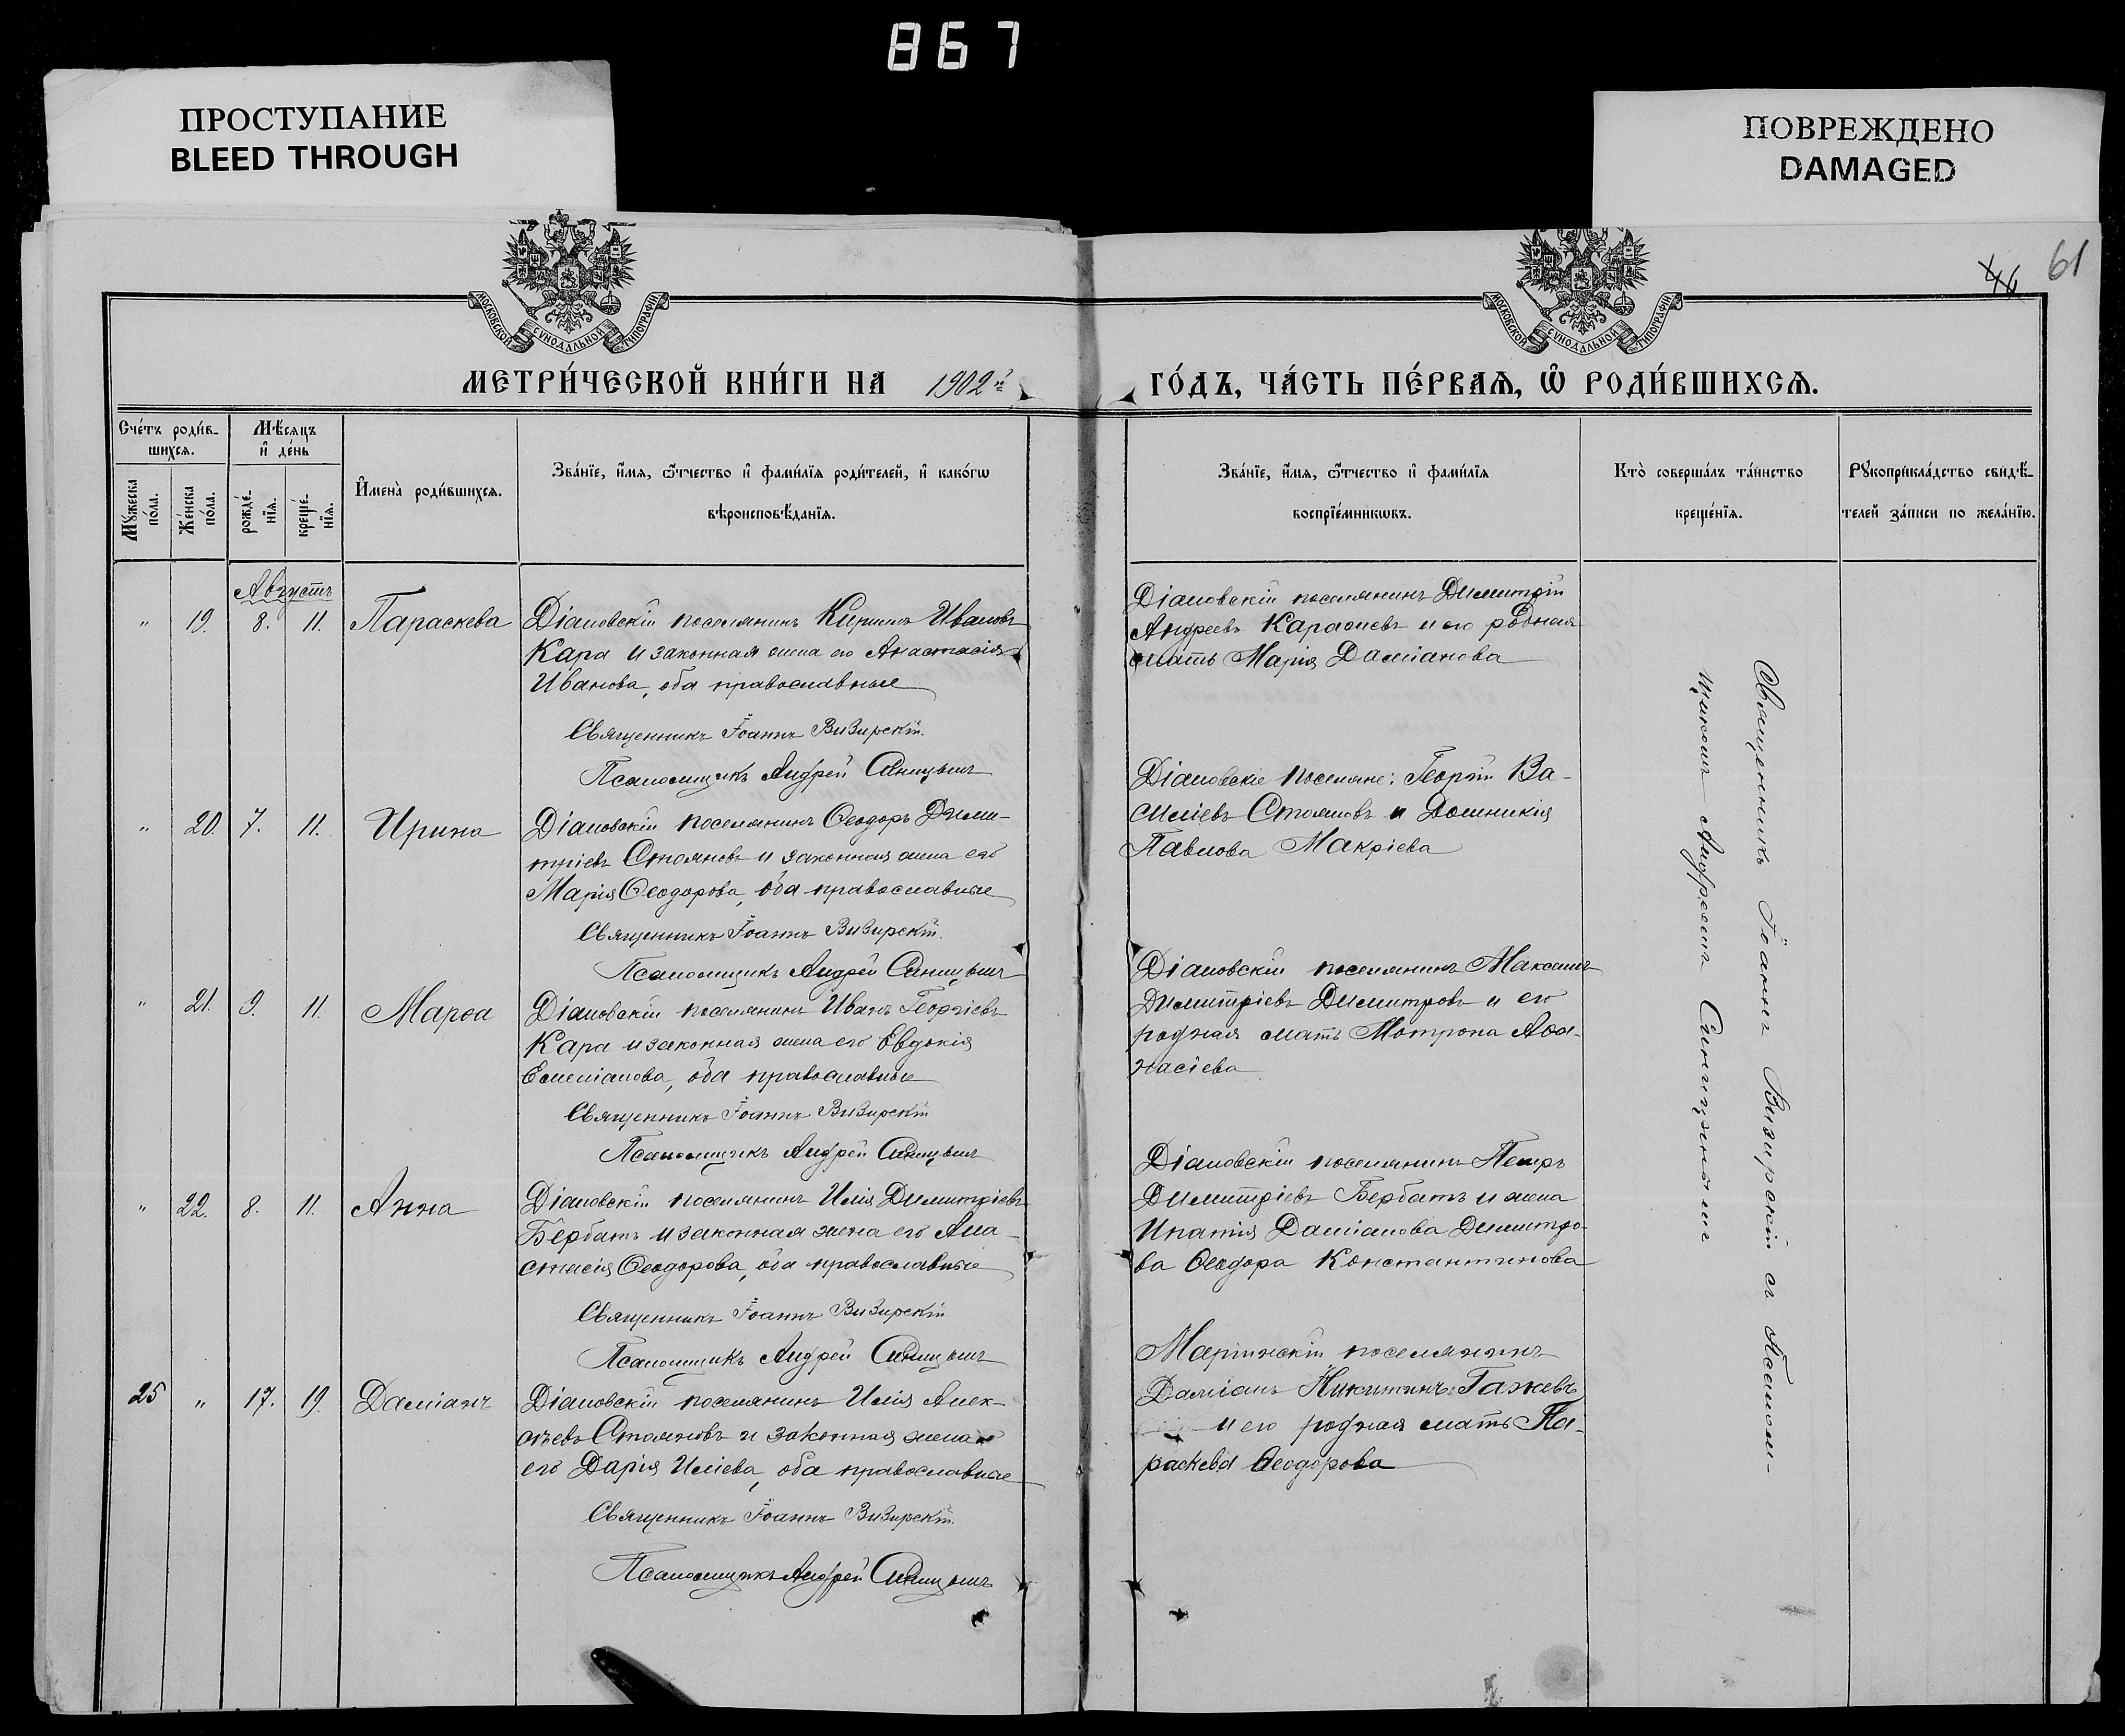 867
ПРОСТУПАНИЕ
BLEED THROUGH
ПОВРЕЖДЕНО
DAMAGED
61
МОСКОВСКОЙ СѴНОДАЛЬНОЙ ТИПОГРАФІИ
МОСКОВСКОЙ СѴНОДАЛЬНОЙ ТИПОГРАФІИ
МЕТРИ́ЧЕСКОЙ КНИ́ГИ НА 1902й
ГО́ДЪ, ЧА́СТЬ ПЕ́РВАѦ, Ѡ҆ РОДИ́ВШИХСѦ.
Сче́тъ роди́в-
шихсѧ.
Мѣ́сѧцъ
и҆ де́нь
Мꙋ́жеска по́ла.
Же́нска по́ла.
рожде́-
нїѧ.
креще́-
нїѧ.
И҆мена̀ роди́вшихсѧ.
Зва́нїе, и҆́мѧ, ѻ҆́тчество и҆ фами́лїѧ роди́телей, и҆ како́гѡ
вѣроисповѣ́данїѧ.
Зва́нїе, и҆́мѧ, ѻ҆́тчество и҆ фами́лїѧ
воспрїе́мникѡвъ.
Кто̀ соверша́лъ та́инство
креще́нїѧ.
Рꙋкоприкла́дство свидѣ́-
телей за́писи по жела́нїю.
Августъ
" 19. 8. 11. Параскева
Діановскій поселянинъ Кириллъ Ивановъ
Кара и законная жена его Анастасія
Иванова, оба православные
Священникъ Іоаннъ Визирскій.
Псаломщикъ Андрей Синицынъ
Діановскій поселянинъ Димитрій
Андреевъ Каражиевъ и его родная
мать Марія Даміанова
" 20. 7. 11. Ирина
Діановскій поселянинъ Ѳеодоръ Дими-
тріевъ Стояновъ и законная жена его
Марія Ѳеодорова, оба православные
Священникъ Іоаннъ Визирскій.
Псаломщикъ Андрей Синицынъ
Діановскіе поселяне: Георгій Ва-
силіевъ Стояновъ и Домникія
Павлова Макріева
" 21. 9. 11. Марѳа
Діановскій поселянинъ Иванъ Георгіевъ
Кара и законная жена его Евдокія
Емеліанова, оба православные
Священникъ Іоаннъ Визирскій
Псаломщикъ Андрей Синицынъ
Діановскій поселянинъ Максимъ
Димитріевъ Димитровъ и его
родная мать Мотрона Аѳа-
насіева
" 22. 8. 11. Анна
Діановскій поселянинъ Илія Димитріевъ
Бербатъ и законная жена его Ана-
стасія Ѳеодорова, оба православные
Священникъ Іоаннъ Визирскій
Псаломщикъ Андрей Синицынъ
Діановскій поселянинъ Петръ
Димитріевъ Бербатъ и жена
Ипатія Даміанова Димитро-
ва Ѳеодора Константинова
25 " 17. 19. Даміанъ
Діановскій поселянинъ Илія Алек-
сѣевъ Стояновъ и законная жена
его Дарія Иліева, оба православные
Священникъ Іоаннъ Визирскій.
Псаломщикъ Андрей Синицынъ
Маріинскій поселянинъ
Даміанъ Никитинъ Гажевъ
и его родная мать Па-
раскева Ѳеодорова
Священникъ Іоаннъ Визирскій съ Псалом-
щикомъ Андреемъ Синицынымъ